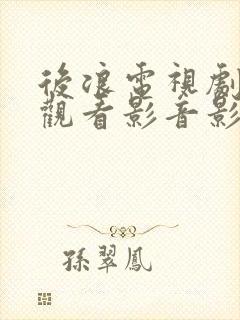 後浪電視劇
觀看影音影
孫翠鳳